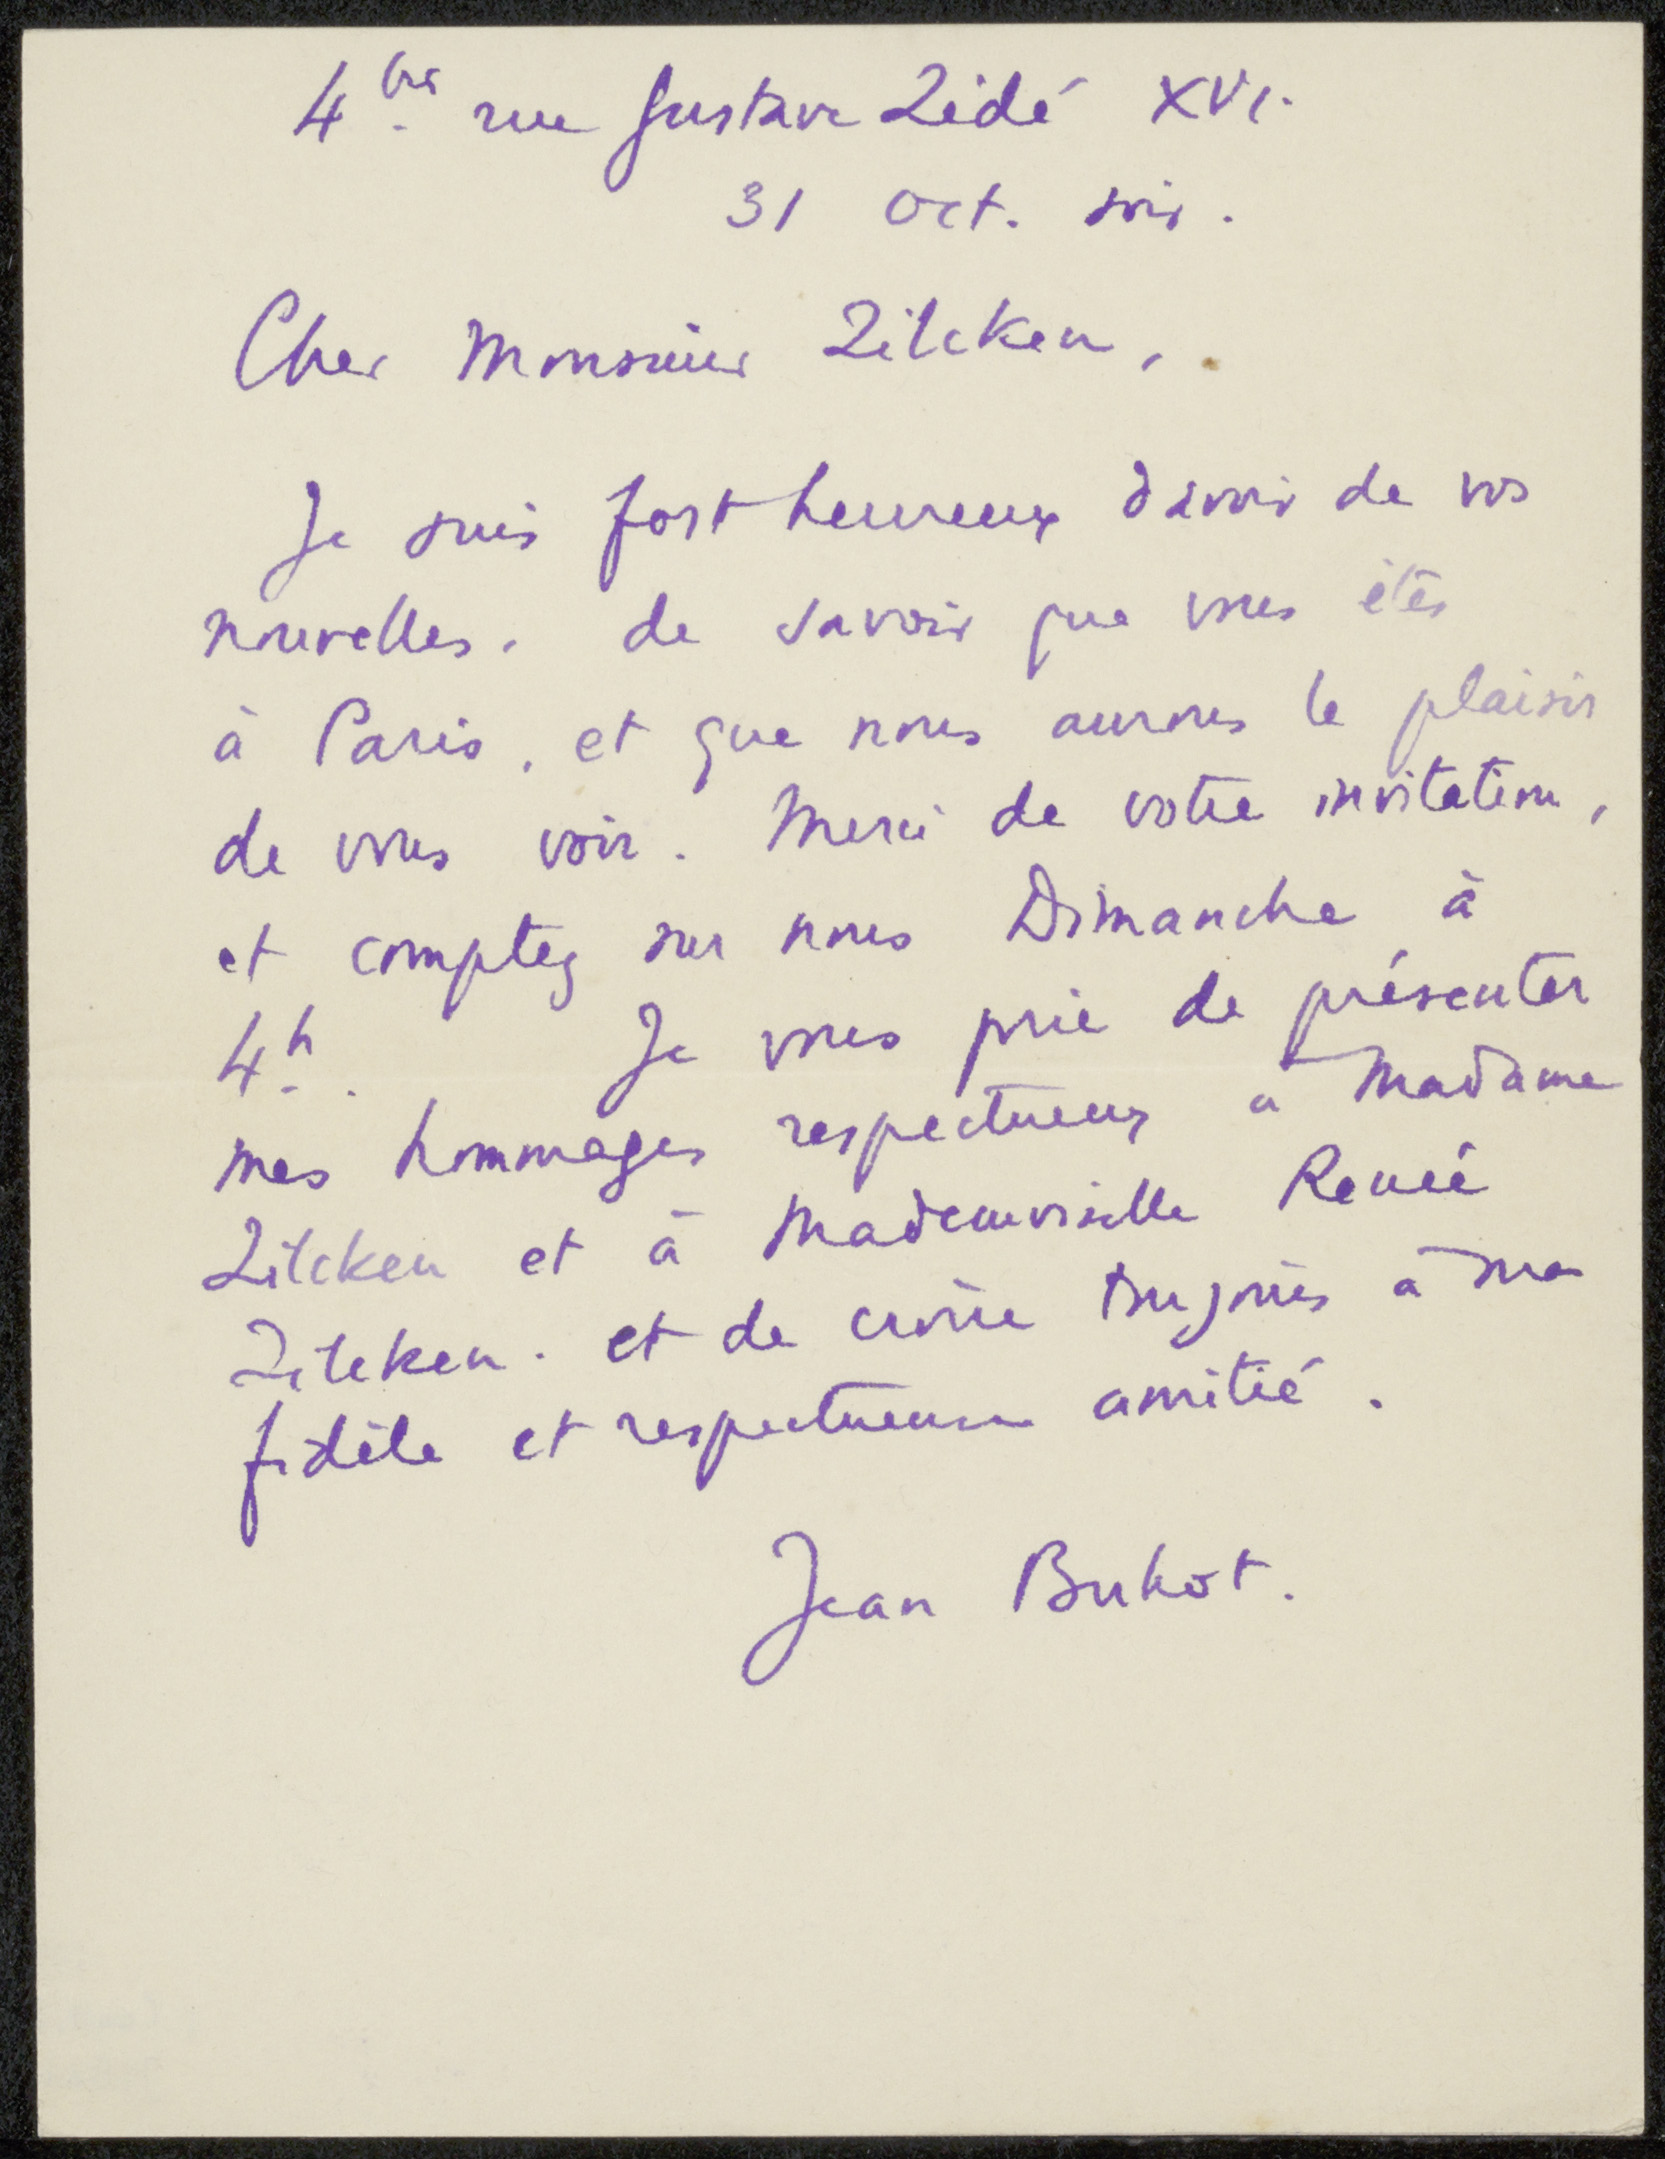 4bis rue Gustave Zédé XVI.
31 oct. soir.
Cher Monsieur Zilcken,
Je suis fort heureux d'avoir de vos
nouvelles, de savoir que vous êtes
à Paris, et que nous aurons le plaisir
de vous voir. Merci de votre invitation,
et comptez sur nous Dimanche à
4h. Je vous prie de présenter
mes hommages respectueux à Madame
Zilcken et à Mademoiselle Renée
Zilcken. et de croire toujours à ma
fidèle et respectueuse amitié.
Jean Buhot.